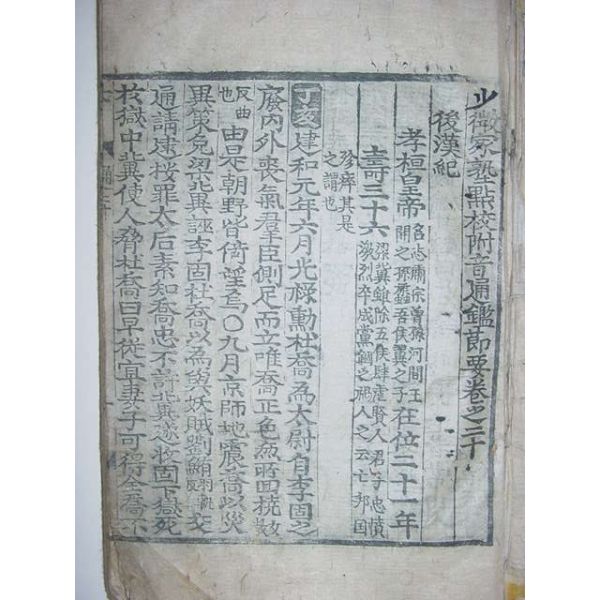 少微家塾點校附音通鑑節要卷之二十
後漢紀
孝桓皇帝名志肅宗曾孫河間王開之孫蠡吾侯翼之子在位二十一年
壽三十六梁冀雖除五侯肆虐賢人君子忠憤激烈卒成黨錮之禍人之云亡邦國
殄瘁其是之謂也
丁亥建和元年六月光祿勳杜喬爲太尉自李固之
廢內外喪氣羣臣側足而立唯喬正色無所回撓
反曲也由是朝野皆倚望焉○九月京師地震喬以災
異策免梁冀誣李固杜喬以爲與妖賊劉鮪交
通請逮按罪太后素知喬忠不許冀遂收固下獄死
於獄中冀使人脅杜喬曰早從宜妻子可得全喬不